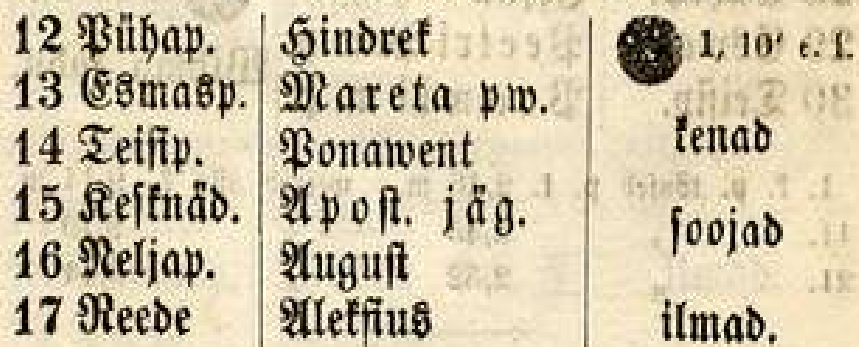 12 Pühap. Hindrek 1, 10' e. l.
13 Esmasp. Mareta pw.
14 Teisip. Ponawent kenad
15 Kesknäd. Apost. jäg.
soojad
16 Neljap. August
17 Reede Aleksius ilmad.